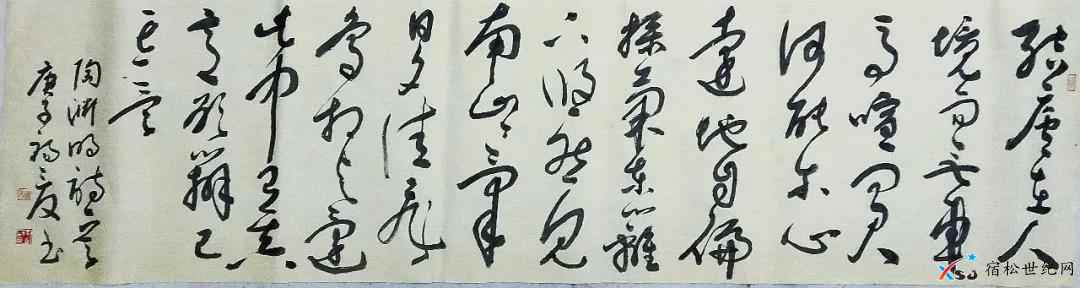 結廬在人
境而無車
馬喧問君
何能尔心
遠地自偏
採菊東籬
下悠然見
南山々氣
日夕佳飛
鳥相與還
此中有真
意欲辨已
忘言
陶渊明詩一首
庚子 書
宿松世纪网